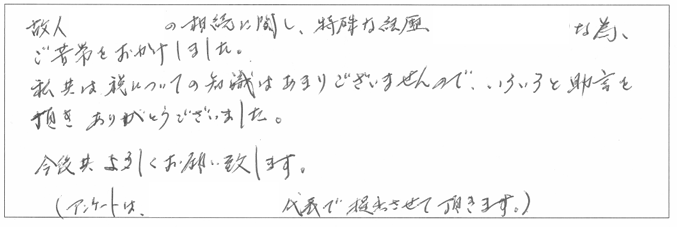 故人 の相続に関し、特殊な経歴 な為、
ご苦労をおかけしました。
私共は税についての知識はあまりございませんので、いろいろと助言を
頂きありがとうございました。
今後共よろしくお願い致します。
(アンケートは、 代表で提出させて頂きます。)